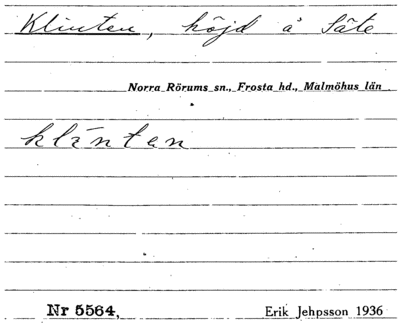 Klinten, höjd å Säte
Norra Rörums sn., Frosta hd., Malmöhus län
kläntan
Nr 5564, Erik Jehpsson 1936